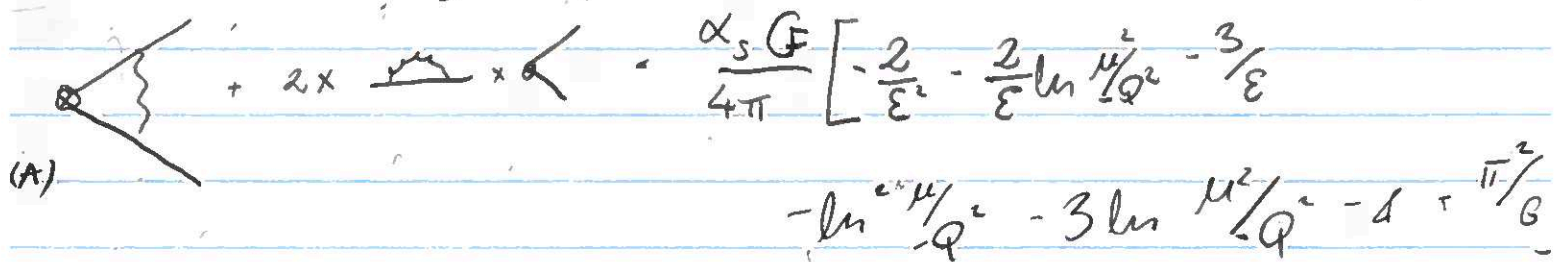 + 2× × = α_s C_F / 4π [ - 2/ε² - 2/ε ln μ²/-Q² - 3/ε
(A) - ln² μ²/-Q² - 3 ln μ²/-Q² - 8 + π²/6